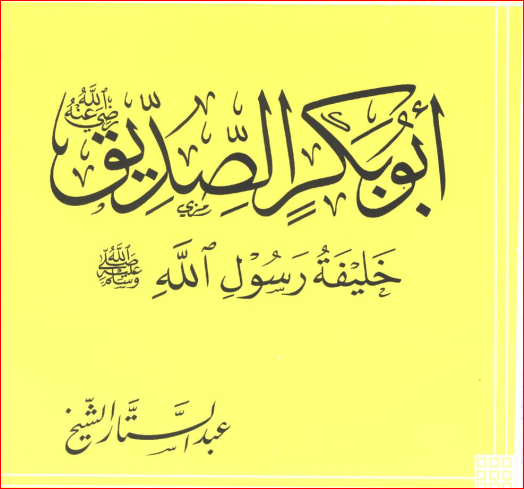 أبو بكرٍ الصِّدِّيق رضي الله عنه
خَلِيْفَةُ رَسُوْلِ ٱللَّهِ ﷺ
عبد السَّتَّار الشَّيخ